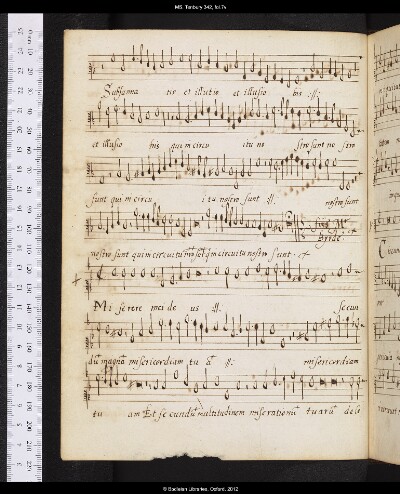 MS. Tenbury 342, fol.7v
Subsanna tio et illutio et illusio his :||:
et illusio his qui in circu itu no stro sunt no stro
sunt qui in circu i tu nostro sunt :||: nostro sunt
Byrde
nostro sunt qui in circuitu circuitu nostro sunt
Mi se rere mei de us :||: secun
dū magnā misericordiam tu ā :||: misericordiam
tu am Et se cundū multitudinem miserationū tuarū dele
© Bodleian Libraries, Oxford, 2012